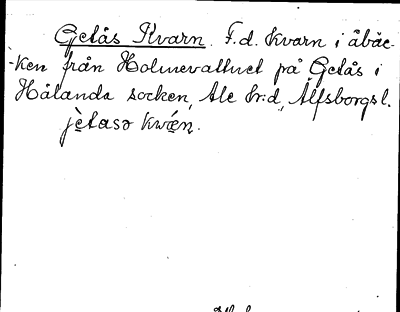 Getås Kvarn. F.d. kvarn i åbäc-
-ken från Holmevattnet på Getås i
Hålanda socken, Ale hrd, Älfsborgsl.
jètasə kwę́ɳ.